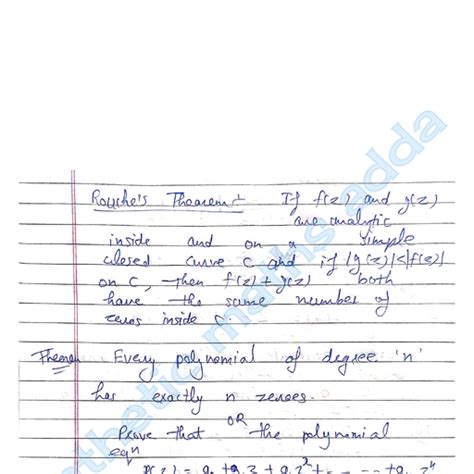 Rouche's Theorem :- If f(z) and g(z)
are analytic
inside and on a simple
closed curve C and if |g(z)|<|f(z)|
on C, then f(z)+g(z) both
have the same number of
zeros inside C.
Theorem Every polynomial of degree 'n'
has exactly n zeroes.
OR
Prove that the polynomial
eqⁿ
P(z) = a₀ + a₁z + a₂z² + --- + aₙzⁿ
maths adda